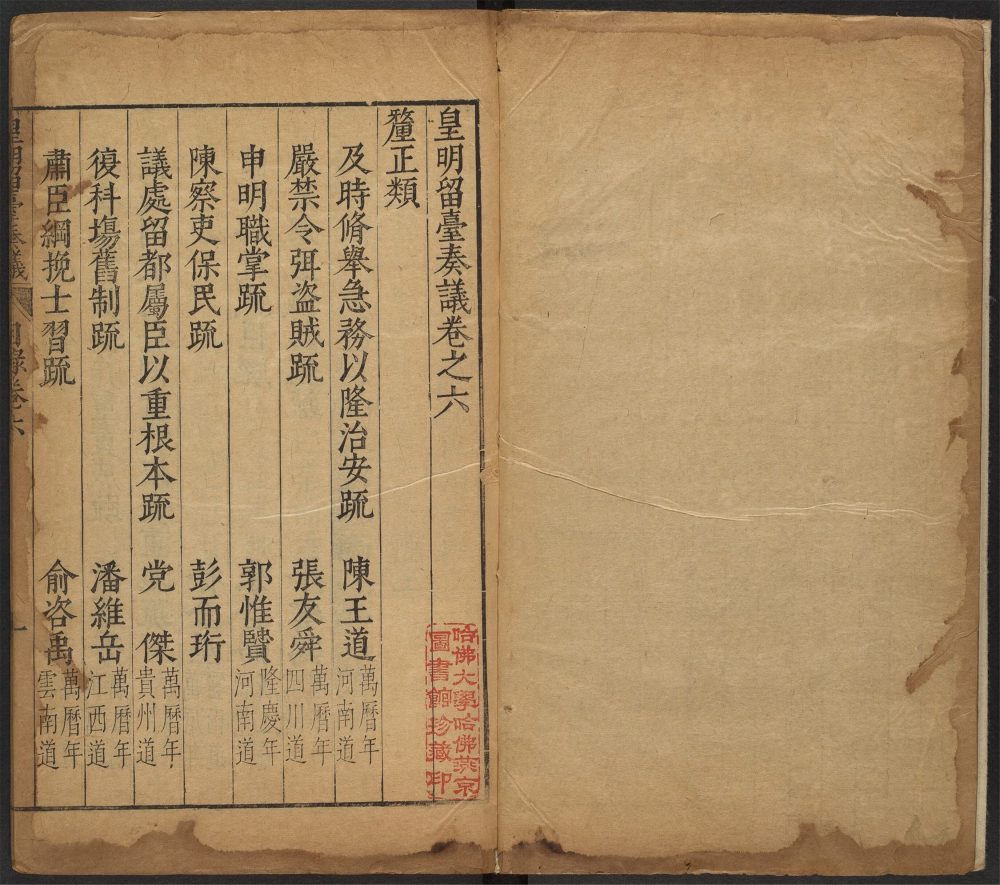 皇明留臺奏議卷之六
釐正類
及時脩舉急務以隆治安疏 陳王道 萬曆年河南道
嚴禁令弭盗賊疏 張友舜 萬曆年四川道
申明職掌疏 郭惟賢 隆慶年河南道
陳察吏保民疏 彭而珩
議處留都屬臣以重根本疏 党 傑 萬曆年貴州道
復科塲舊制疏 潘維岳 萬曆年江西道
肅臣綱挽士習疏 俞咨禹 萬曆年雲南道
皇明留臺奏議 目錄卷六 一
哈佛大學哈佛燕京圖書館珍藏印